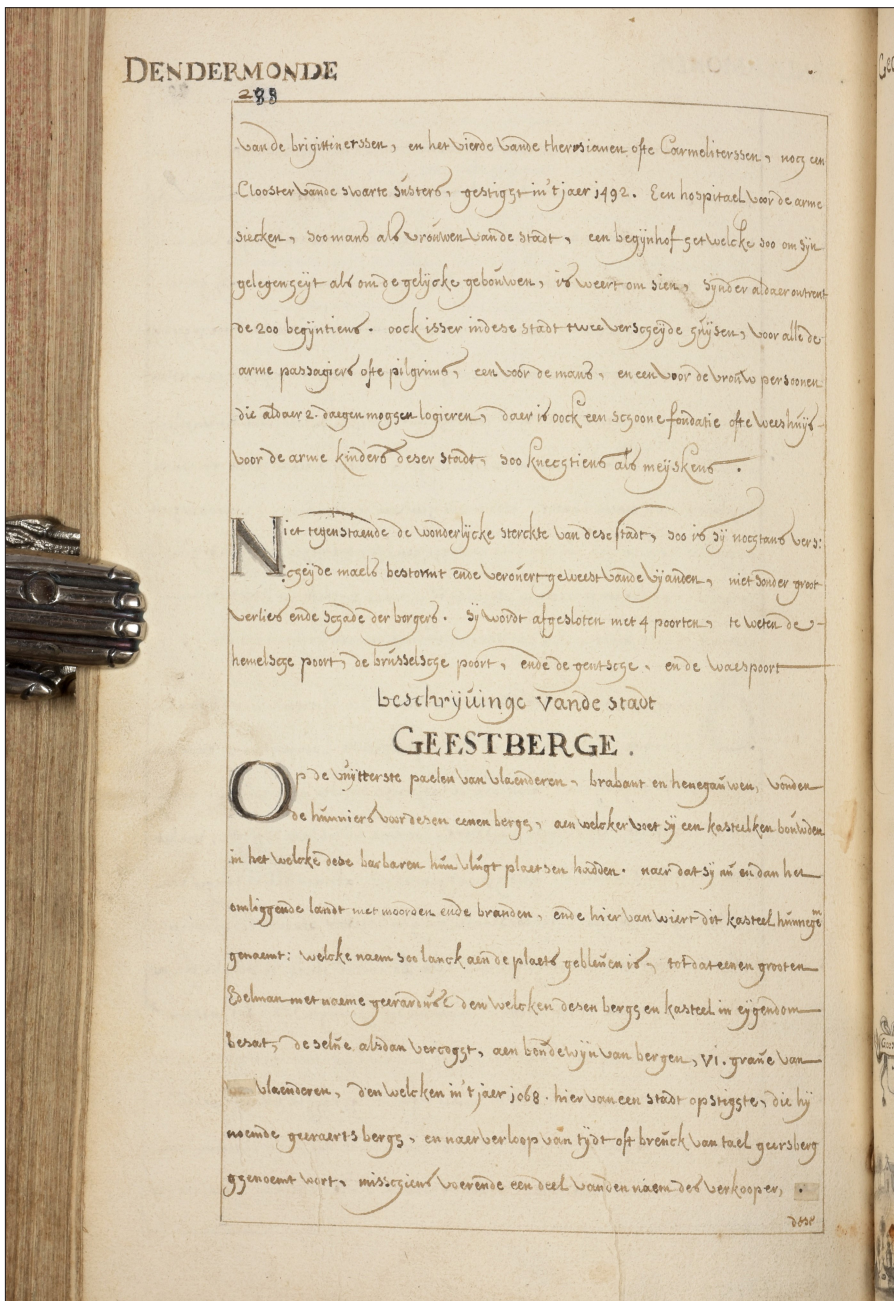 DENDERMONDE
288
vande brigittinerssen, en het vierde vande theresianen ofte Carmeliterssen, noch een
Clooster vande swarte süsters, gesticht in't jaer 1492. Een hospitael voor de arme
siecken, soo mans als vroüwen vande stadt, een begijnhof hetwelcke soo om sijn
gelegenheyt als om de gelijcke geboüwen, is weert om sien, sijnder aldaer ontrent
de 200 begijntiens. oock isser indese stadt twee verscheyde hüysen, voor alle de
arme passagiers ofte pilgrims, een voor de mans, en een voor de vroüw persoonen
die aldaer 2. daegen moghen logieren, daer is oock een schoone fondatie ofte weeshüys
voor de arme kinders deser stadt, soo knechtiens als meyskens.
Niet tegenstaende de wonderlijcke sterckte van dese stadt, soo is sy nochtans vers:
:cheyde maels bestormt ende verovert geweest vande vyanden, niet sonder groot
verlies ende schade der borgers. sy wordt afgesloten met 4 poorten, te weten de
hemelsche poort, de brüsselsche poort, ende de gentsche. en de waespoort
beschrijüinge vande stadt
GEESTBERGE.
Op de üÿtterste paelen van vlaenderen, brabant en henegaüwen, vonden
de hünniers voor desen eenen bergh, aen welcker voet sy een kasteelken boüwden
in het welcke dese barbaren hün vlügt plaetsen hadden. naer dat sy nü en dan het
omliggende landt met moorden ende branden, ende hier van wiert dit kasteel hünnegem
genaemt: welcke naem soo lanck aen de plaets gebleüen is, tot dat eenen grooten
Edelman met naeme geerardüs den welcken desen bergh en kasteel in eygendom
besat, de selüe alsdan vercogt, aen boüdewijn van bergen, VI. graüe van
vlaenderen, den welcken in't jaer 1068. hier van een stadt opstigte, die hij
noemde geeraerts bergh, en naer verloop van tijdt oft breück van tael geersberg
ghenoemt wort, misschiens voerende een deel vanden naem des verkooper,
dese